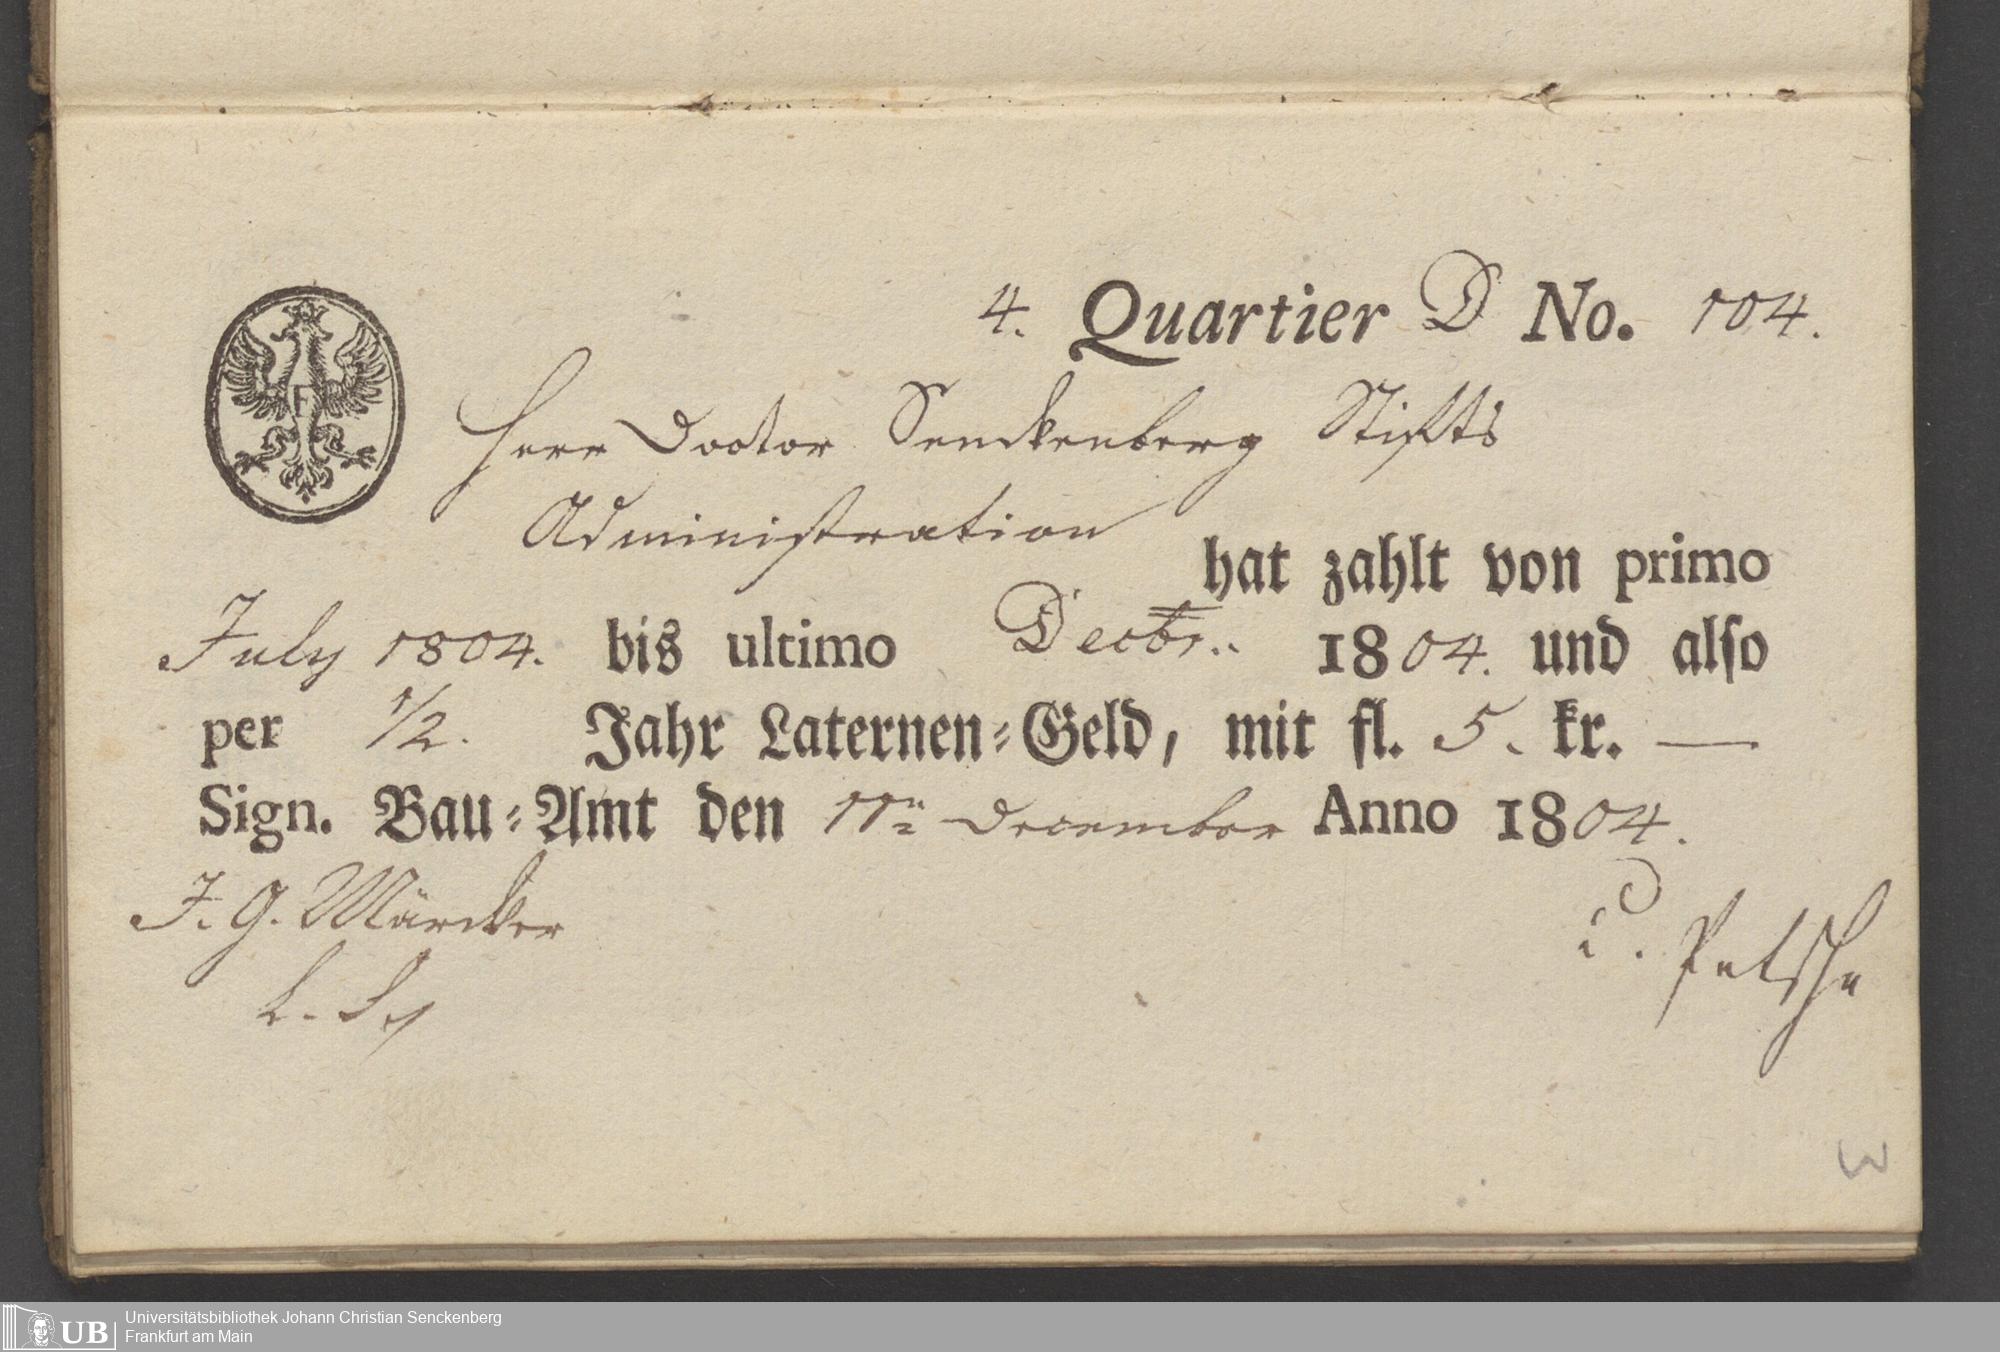 4. Quartier D No. 104.
F
Herr Doctor Senckenberg Stifts
Administration
hat zahlt von primo
July 1804. bis ultimo Decbr.. 1804. und alſo
per 1/2. Jahr Laternen=Geld, mit fl. 5. kr. —
Sign. Bau=Amt den 11n December Anno 1804.
J. G. Märcker
Petsche
3
UB Universitätsbibliothek Johann Christian Senckenberg
Frankfurt am Main